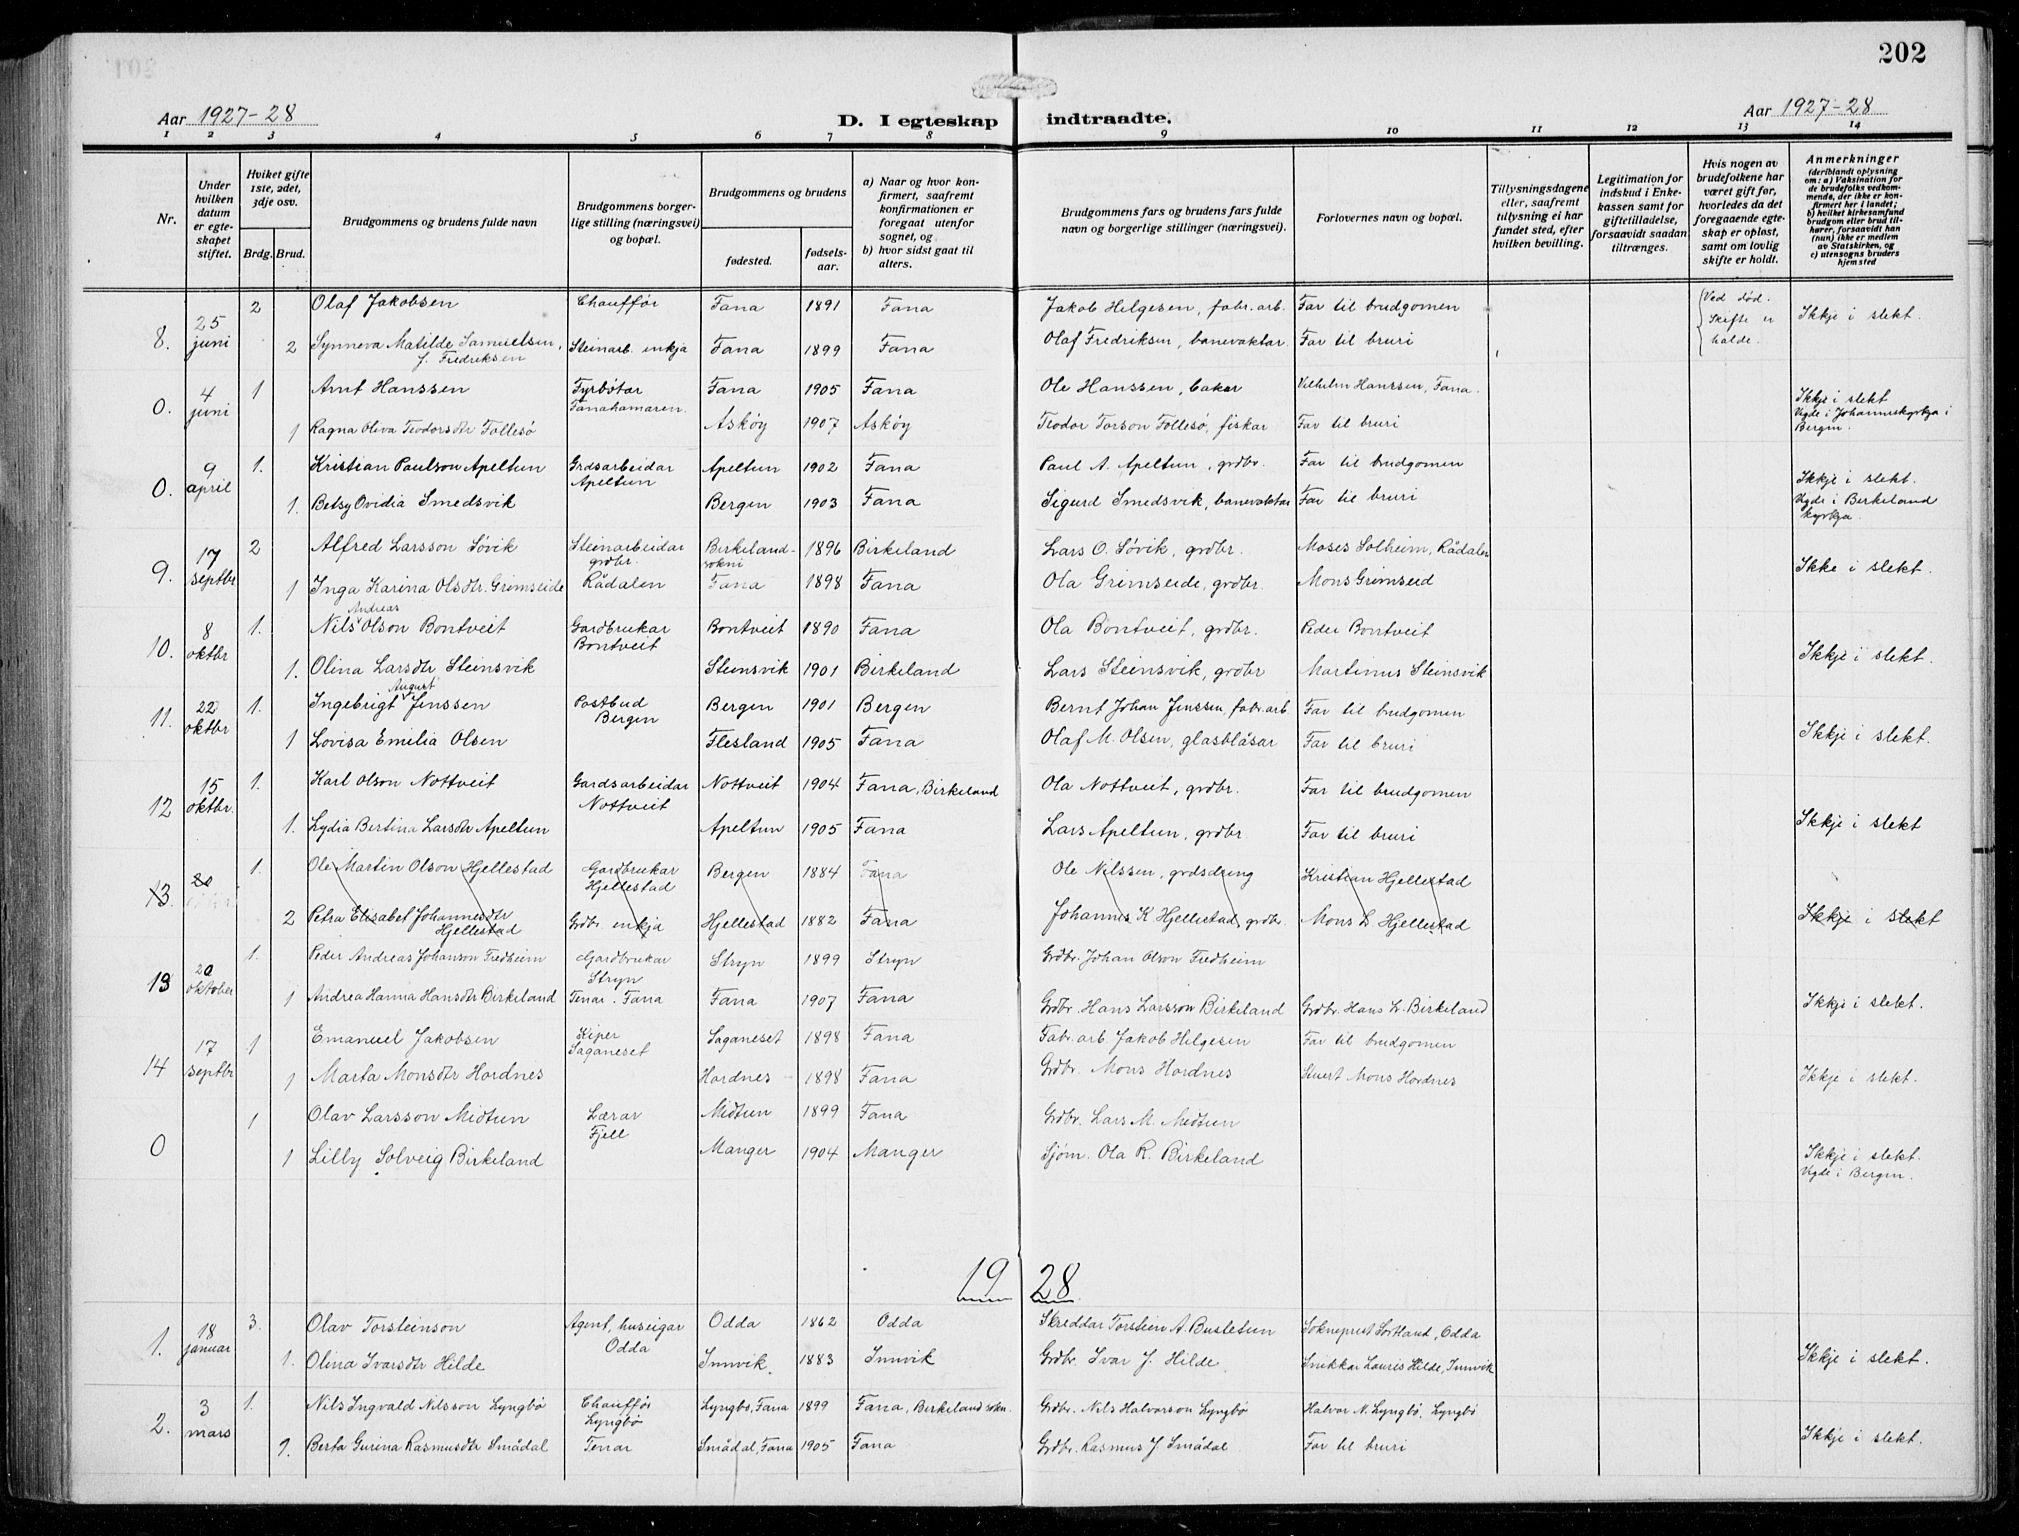 202
Aar 1927-28
D. I egteskap indtraadte.
Aar 1927-28
1 2 3 4 5 6 7 8 9 10 11 12 13 14
Nr.
Under hvilken datum er egteskapet stiftet.
Hviket gifte 1ste, 2det, 3dje osv.
Brdg. Brud.
Brudgommens og brudens fulde navn
Brudgommens borgerlige stilling (næringsvei) og bopæl.
Brudgommens og brudens
fødested.
fødselsaar.
a) Naar og hvor konfirmert, saafremt konfirmationen er foregaat utenfor sognet, og
b) hvor sidst gaat til alters.
Brudgommens fars og brudens fars fulde navn og borgerlige stillinger (næringsvei).
Forlovernes navn og bopæl.
Tillysningsdagene eller, saafremt tillysning ei har fundet sted, efter hvilken bevilling.
Legitimation for indskud i Enkekassen samt for giftetilladelse, forsaavidt saadan tiltrænges.
Hvis nogen av brudefolkene har været gift før, hvorledes da det foregaaende egteskap er opløst, samt om lovlig skifte er holdt.
Anmerkninger
(deriblandt oplysning om: a) Vaksination for de brudefolks vedkommende, der ikke er konfirmert her i landet; b) hvilket kirkesamfund brudgom eller brud tilhører, forsaavidt han (hun) ikke er medlem av Statskirken, og c) utensogns bruders hjemsted
8. 25 juni 2 Olaf Jakobsen Chauffør Fana 1891 Fana Jakob Helgesen, fabr. arb. Far til brudgomen Ved død. Skifte er halde. Ikkje i slekt.
2 Synneva Matilde Samuelsen, f. Fredriksen Steinarb. enkja Fana 1899 Fana Olaf Fredriksen, banevaktar Far til bruri
0. 4 juni 1 Arnt Hanssen Fyrbøtar Fanahamaren. Fana 1905 Fana Ole Hanssen, bakar Vilhelm Hanssen, Fana. Ikkje i slekt
1 Ragna Oliva Teodorsdtr Follesø Askøy 1907 Askøy Teodor Torson Follesø, fiskar Far til bruri Vigde i Johanneskyrkja i Bergen.
0. 9 april 1. Kristian Paulson Apeltun Grdsarbeidar Apeltun Apeltun 1902 Fana Paul A. Apeltun, grdbr. Far til brudgomen Ikkje i slekt.
1. Betsy Ovidia Smedsvik Bergen 1903 Fana Sigurd Smedsvik, banevaktar Far til bruri Vigde i Birkeland kyrkja.
9. 17 septbr 2 Alfred Larsson Søvik Steinarbeidar grdbr. Birkelandsokni 1896 Birkeland Lars O. Søvik, grdbr. Moses Solheim, Rådalen Ikke i slekt.
1 Inga Karina Olsdtr. Grimseide Rådalen Fana 1898 Fana Ola Grimseide, grdbr. Mons Grimseid
10. 8 oktbr 1. Nils Andreas Olson Bontveit Gardbrukar Bontveit Bontveit 1890 Fana Ola Bontveit, grdbr. Peder Bontveit Ikkje i slekt.
1. Olina Larsdtr Steinsvik Steinsvik 1901 Birkeland Lars Steinsvik, grdbr Martinus Steinsvik
11. 22 oktbr 1. Ingebrigt August Jenssen Postbud Bergen Bergen 1901 Bergen Bernt Johan Jenssen, fabr. arb. Far til brudgomen Ikkje i slekt.
1 Lovisa Emilia Olsen Flesland 1905 Fana Olaf M. Olsen, glasblåsar Far til bruri
12 15 oktbr. 1. Karl Olson Nottveit Gardsarbeidar Nottveit Nottveit 1904 Fana, Birkeland Ola Nottveit, grdbr. Far til brudgomen Ikkje i slekt
1. Lydia Bertina Larsdtr Apeltun Apeltun 1905 Fana Lars Apeltun, grdbr Far til bruri
13. 20 1. Ole Martin Olson Hjellestad Gardbrukar Hjellestad Bergen 1884 Fana Ole Nilssen, grdsdreng Kristian Hjellestad Ikkje i slekt
2 Petra Elisabet Johannesdtr Hjellestad Grdbr. enkja Hjellestad 1882 Fana Johannes K Hjellestad, grdbr. Mons L. Hjellestad
13 20 oktober 1. Peder Andreas Johanson Fredheim Gardbrukar Stryn Stryn 1899 Stryn Grdbr. Johan Olson Fredheim Ikkje i slekt.
1 Andrea Hanna Hansdtr Birkeland Tenar. Fana Fana 1907 Fana Grdbr. Hans Larsson Birkeland Grdbr. Hans L. Birkeland
14 17 septbr 1 Emanuel Jakobsen Kiper Saganeset Saganeset 1898 Fana Fabr. arb. Jakob Helgesen Far til brudgomen Ikkje i slekt.
1 Marta Monsdtr Hordnes Hordnes 1898 Fana Grdbr. Mons Hordnes Sivert Mons. Hordnes
0 1 Olav Larsson Midtun Lærar Fjell Midtun 1899 Fana Grdbr. Lars M. Midtun Ikkje i slekt.
1 Lilly Solveig Birkeland Manger 1904 Manger Sjøm. Ola R. Birkeland Vigde i Bergen.
1928
1. 18 januar 3. Olav Torsteinson Agent, huseigar Odda Odda 1862 Odda Skreddar Torstein A. Busletun Sokneprest Sortland, Odda Ikkje i slekt.
1. Olina Ivarsdtr Hilde Innvik 1883 Innvik Grdbr. Ivar J. Hilde. Snikkar Lauris Hilde, Innvik
2. 3 mars 1. Nils Ingvald Nilsson Lyngbø Chauffør Lyngbø Lyngbø, Fana 1899 Fana, Birkeland sokn. Grdbr. Nils Halvorson Lyngbø Halvor N. Lyngbø, Lyngbø Ikkje i slekt.
1. Berta Gurina Rasmusdtr Smådal Tenar Smådal, Fana 1905 Fana Grdbr. Rasmus J Smådal Far til bruri